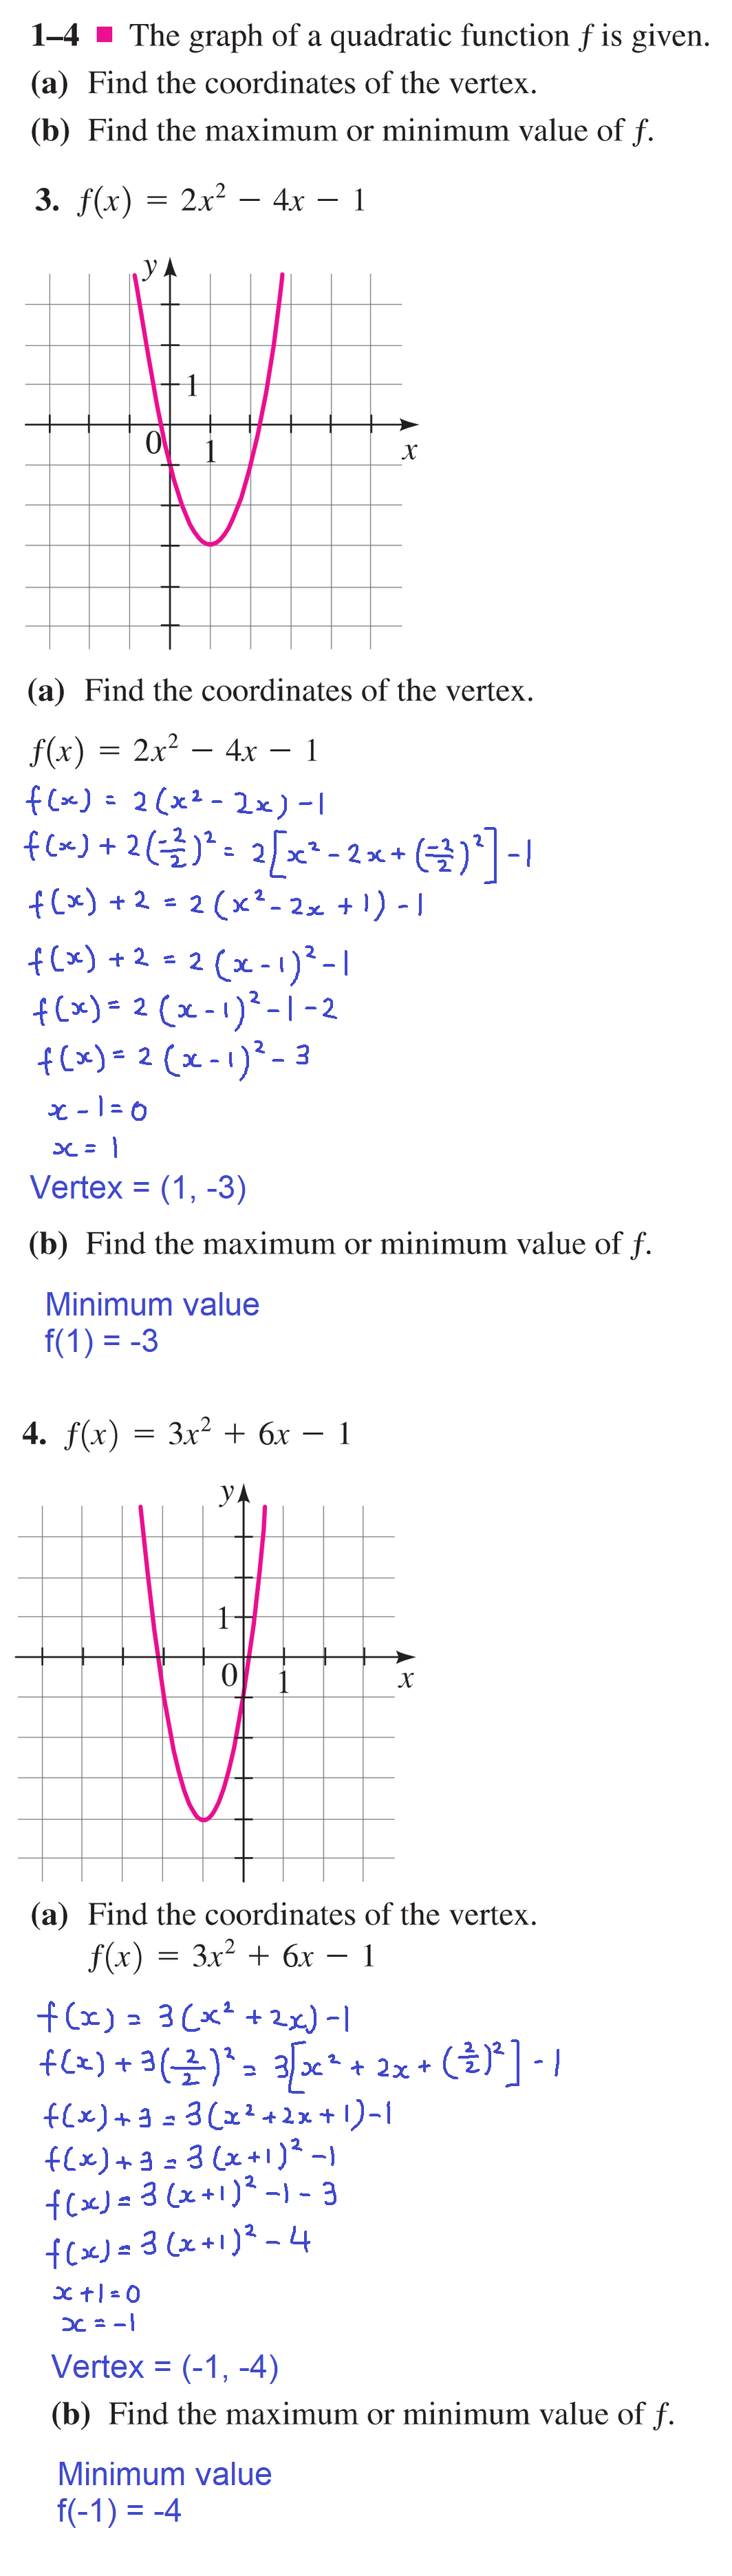 1–4 ■ The graph of a quadratic function f is given.
(a) Find the coordinates of the vertex.
(b) Find the maximum or minimum value of f.
3. f(x) = 2x² − 4x − 1
y
1
0
1
x
(a) Find the coordinates of the vertex.
f(x) = 2x² − 4x − 1
f(x) = 2(x² - 2x) - 1
f(x) + 2(-2/2)² = 2[x² - 2x + (-2/2)²] - 1
f(x) + 2 = 2(x² - 2x + 1) - 1
f(x) + 2 = 2(x - 1)² - 1
f(x) = 2(x - 1)² - 1 - 2
f(x) = 2(x - 1)² - 3
x - 1 = 0
x = 1
Vertex = (1, -3)
(b) Find the maximum or minimum value of f.
Minimum value
f(1) = -3
4. f(x) = 3x² + 6x − 1
y
1
0
1
x
(a) Find the coordinates of the vertex.
f(x) = 3x² + 6x − 1
f(x) = 3(x² + 2x) - 1
f(x) + 3(2/2)² = 3[x² + 2x + (2/2)²] - 1
f(x) + 3 = 3(x² + 2x + 1) - 1
f(x) + 3 = 3(x + 1)² - 1
f(x) = 3(x + 1)² - 1 - 3
f(x) = 3(x + 1)² - 4
x + 1 = 0
x = -1
Vertex = (-1, -4)
(b) Find the maximum or minimum value of f.
Minimum value
f(-1) = -4